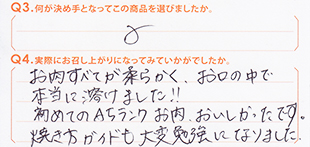 Q3.何が決め手となってこの商品を選びましたか。
Q4.実際にお召し上がりになってみていかがでしたか。
お肉すべてが柔らかく、お口の中で
本当に溶けました!!
初めてのA5ランクお肉、おいしかったです。
焼き方ガイドも大変勉強になりました